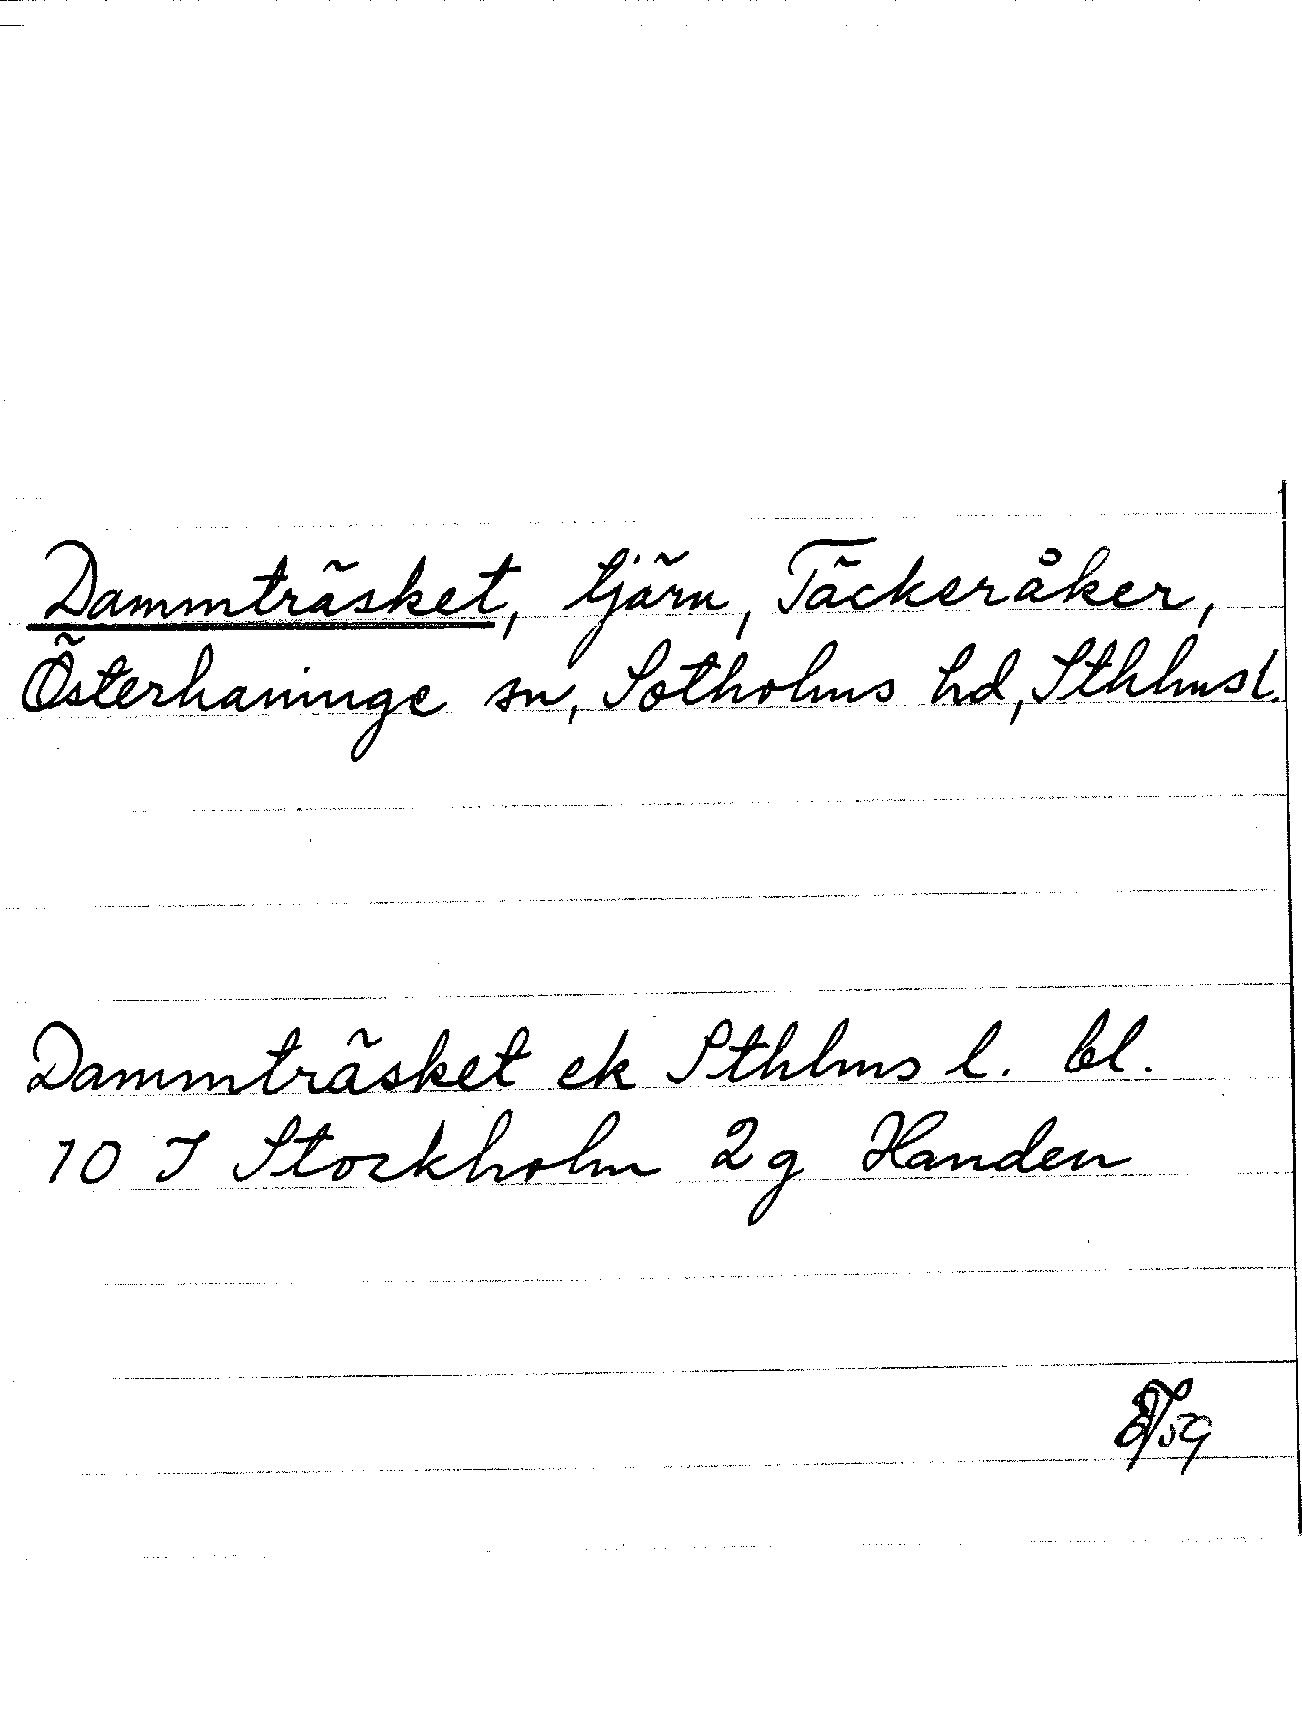 Dammträsket, tjärn, Täckeråker,
Österhaninge sn, Sotholms hd, Sthlmsl.
Dammträsket ek Sthlms l. bl.
10 I Stockholm 2g Handen